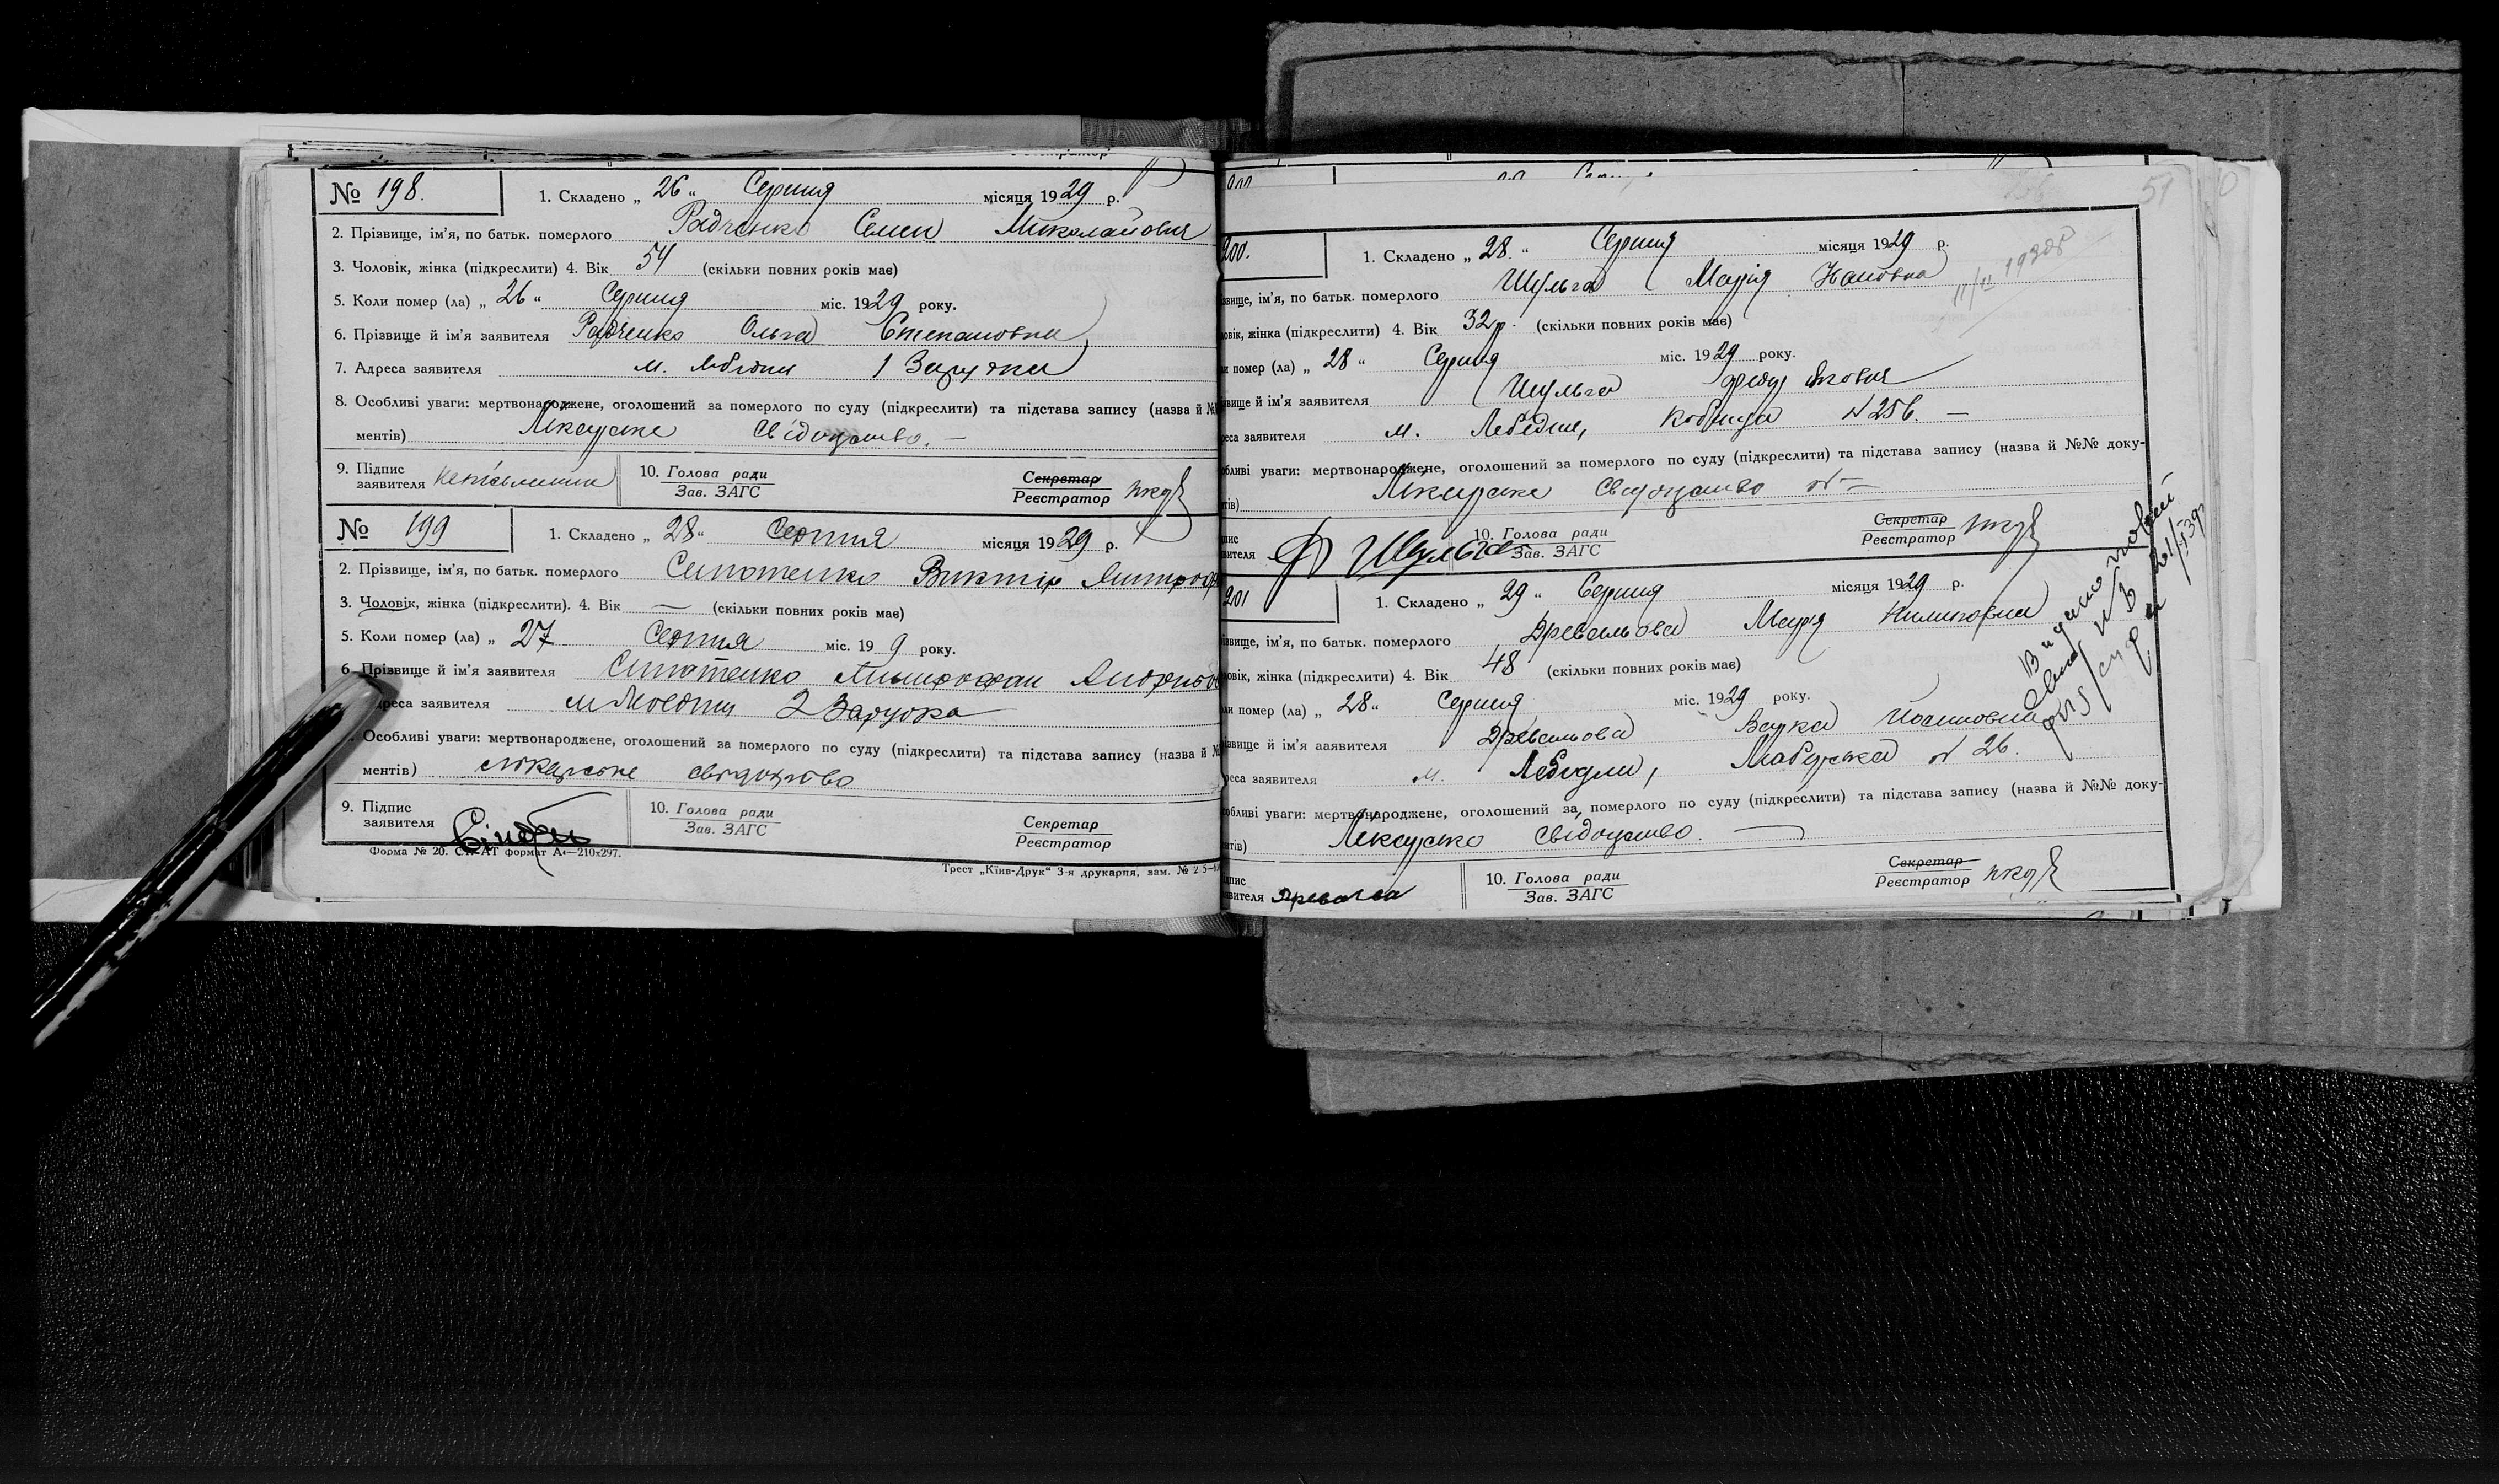 № 198. 1. Складено „ 26 “ Серпня місяця 1929 р.
2. Прізвище, ім'я, по батьк. померлого Радченко Семен Миколайович
3. Чоловік, жінка (підкреслити) 4. Вік 54 (скільки повних років має)
5. Коли помер (ла) „ 26 “ Серпня міс. 1929 року.
6. Прізвище й ім'я заявителя Радченко Ольга Степановна
7. Адреса заявителя м. 1 Зарудка
8. Особливі уваги: мертвонароджене, оголошений за померлого по суду (підкреслити) та підстава запису (назва й №
ментів) Лікарське Свідоцтво. —
9. Підпис заявителя неписьменна 10. Голова ради Зав. ЗАГС Секретар Реєстратор
№ 199 1. Складено „ 28 “ Серпня місяця 1929 р.
2. Прізвище, ім'я, по батьк. померлого Виктір
3. Чоловік, жінка (підкреслити). 4. Вік — (скільки повних років має)
5. Коли помер (ла) „ 27 Серпня міс. 19 9 року.
6. Прізвище й ім'я заявителя
адреса заявителя м 2 Зарудка
Особливі уваги: мертвонароджене, оголошений за померлого по суду (підкреслити) та підстава запису (назва й №
ментів) лікарське свідоцтво
9. Підпис заявителя 10. Голова ради Зав. ЗАГС Секретар Реєстратор
Форма № 20. формат А4—210x297.
Трест „Київ-Друк“ 3-я друкарня, зам. № 2 5—
51
200. 1. Складено „ 28. “ Серпня місяця 1929 р.
звище, ім'я, по батьк. померлого Шульга Марія
ловік, жінка (підкреслити) 4. Вік 32 р. (скільки повних років має)
ли помер (ла) „ 28 “ Серпня міс. 1929 року.
звище й ім'я заявителя Шульга Федір Якович
реса заявителя м. Лебедин, Кобижча № 256. —
обливі уваги: мертвонароджене, оголошений за померлого по суду (підкреслити) та підстава запису (назва й №№ доку-
нтів) Лікарське Свідоцтво № —
дпис вителя Ф Шульга 10. Голова ради Зав. ЗАГС Секретар Реєстратор
201 1. Складено „ 29 “ Серпня місяця 1929 р.
звище, ім'я, по батьк. померлого Древальова Марія
ловік, жінка (підкреслити) 4. Вік 48 (скільки повних років має)
ли помер (ла) „ 28 “ Серпня міс. 1929 року.
звище й ім'я заявителя Древальова Варка
реса заявителя м. Лебедин, № 26.
обливі уваги: мертвонароджене, оголошений за померлого по суду (підкреслити) та підстава запису (назва й №№ доку-
нтів) Лікарське Свідоцтво. —
дпис вителя 10. Голова ради Зав. ЗАГС Секретар Реєстратор